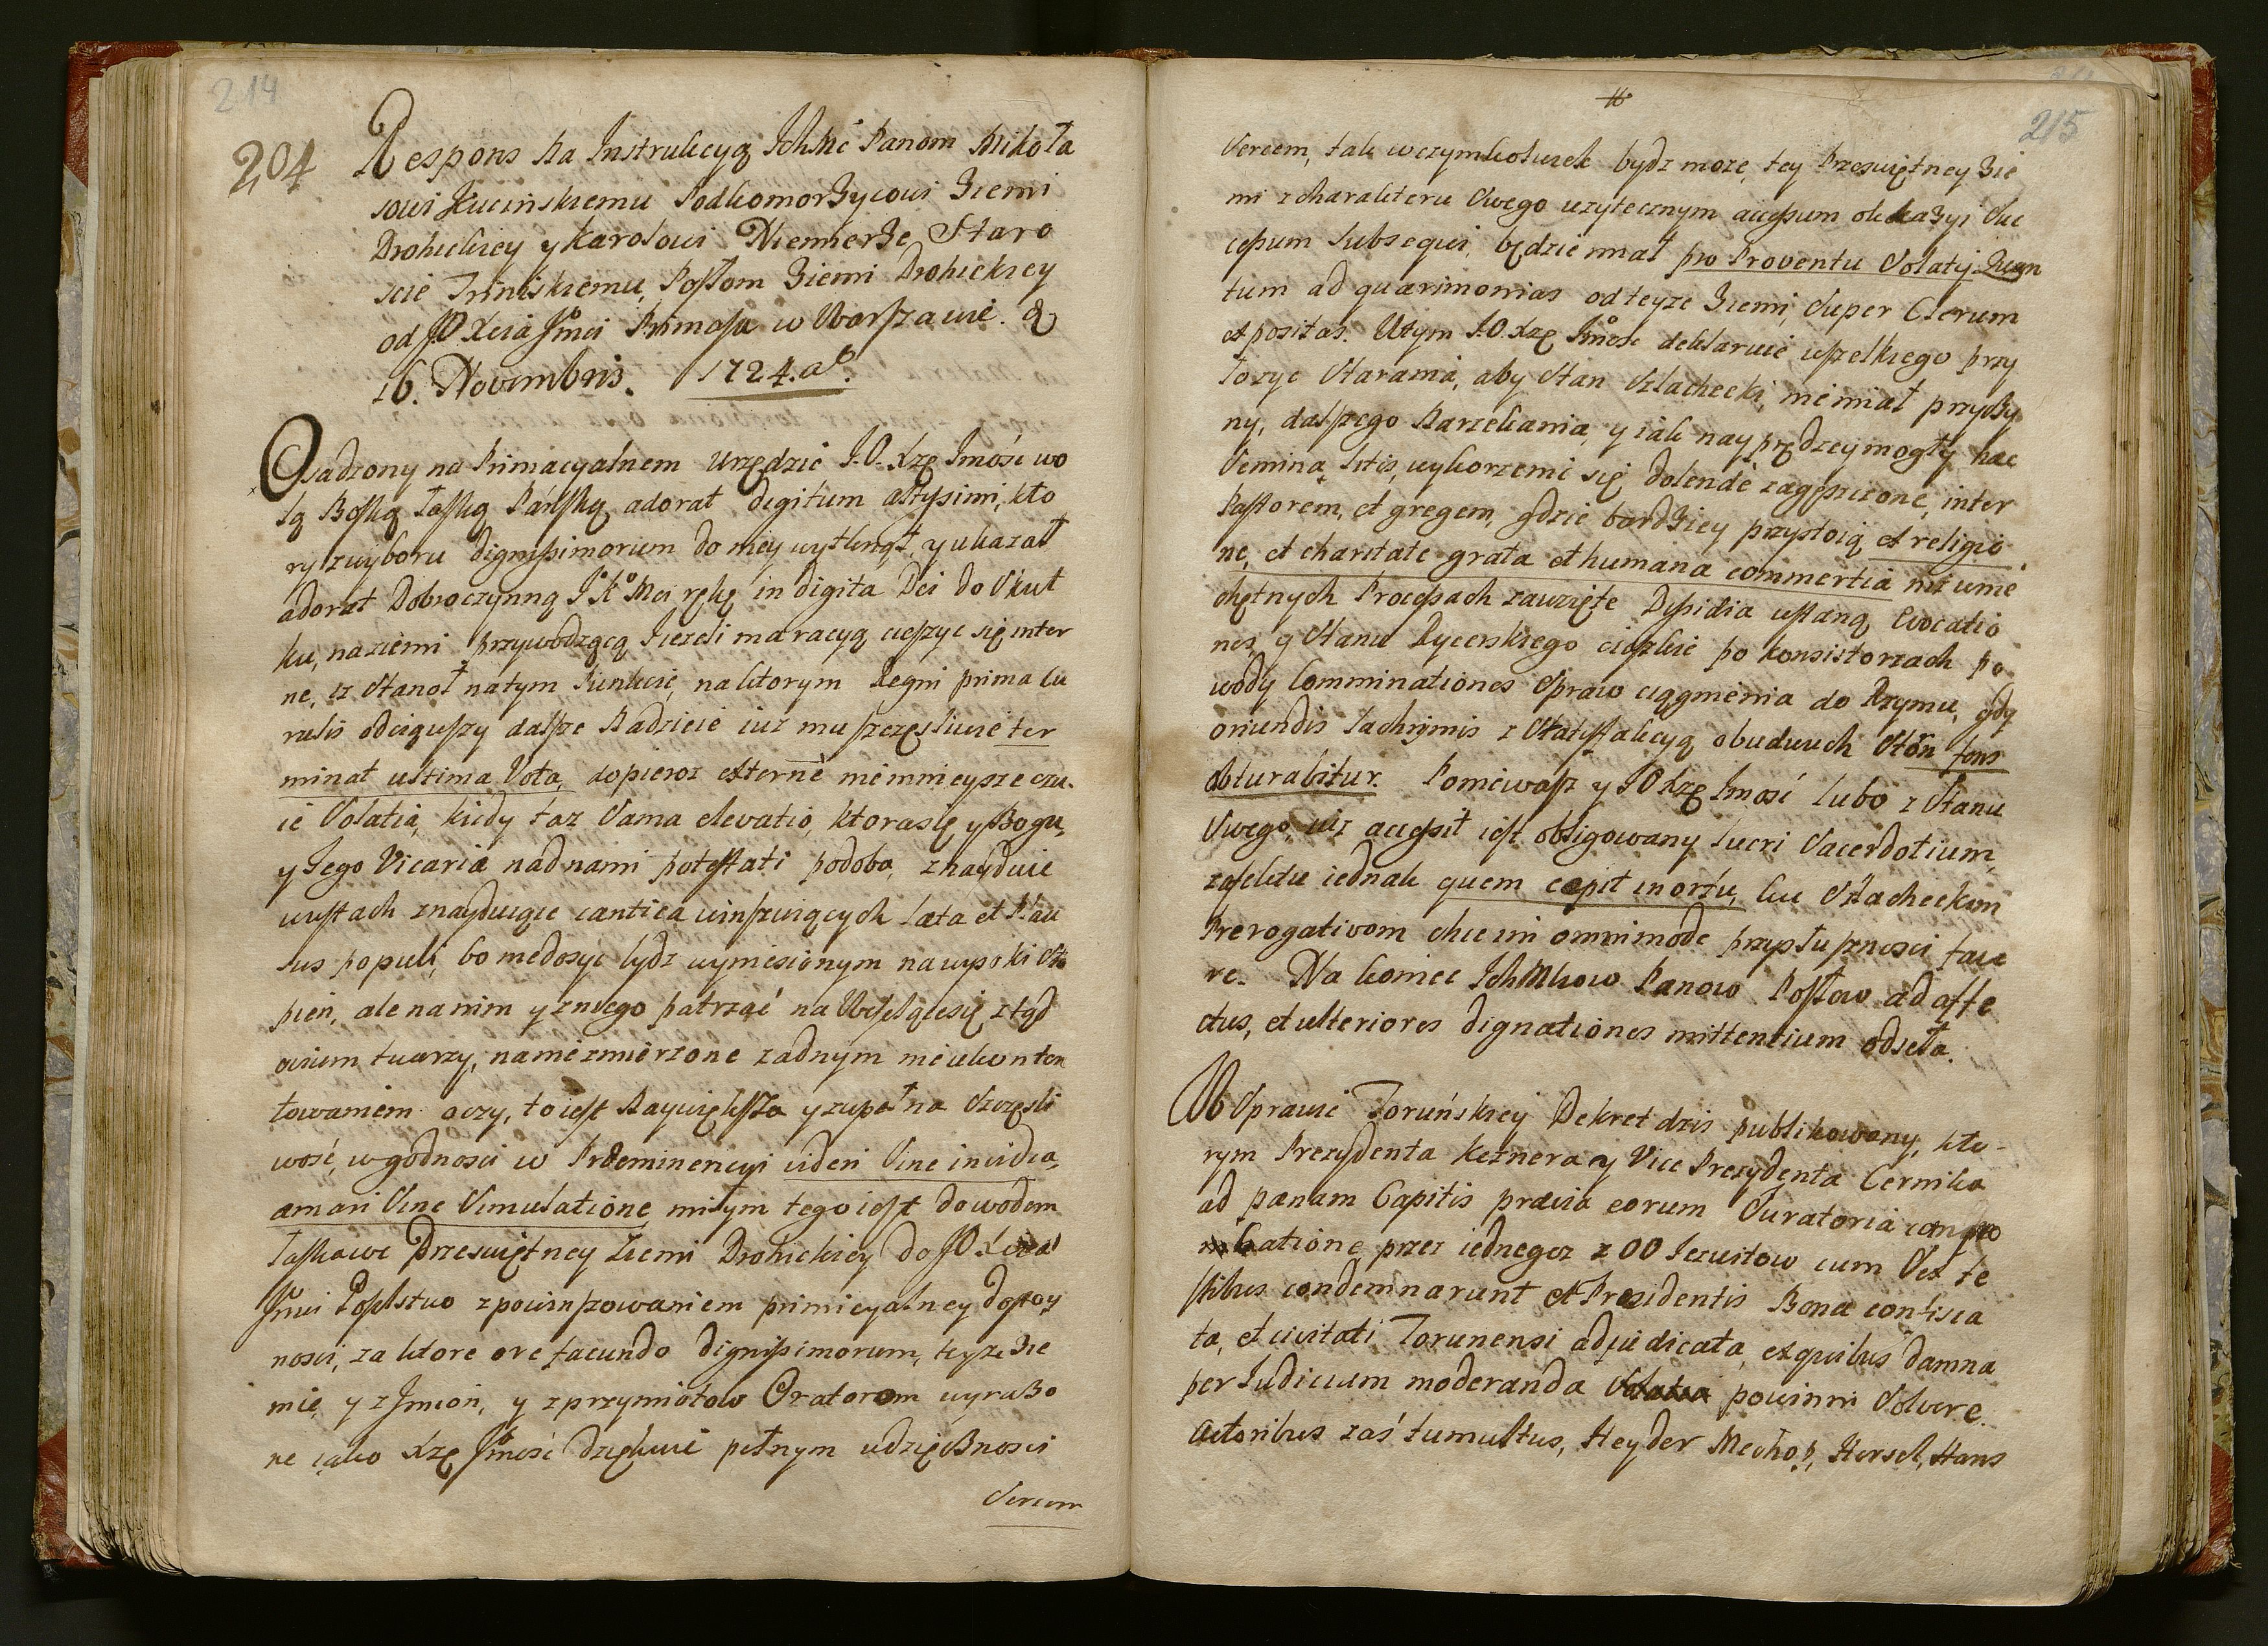 214
204
Respons na Instrukcyą Ichmć Panom Mikoła
iowi Kucinskiemu Podkomorzycowi Ziemi
Drohickiey y Karolowi Niemierze Staro
scie Posłom Ziemi Drohickiey
od JO Xcia Jmci Primasa w Warszawie. d
16. Novembris. 1724. ao.
Osadzony na Primacyalnem Urzędzie J.O. Xżę Jmość wo
lą Boską łaską Pańską adorat digitum altissimi, kto
ry z wyboru dignissimorum do niey wytknął, y ukazał
adorat Dobroczynną J K Mci rękę in digita Dei do Skut
ku, na ziemi przywodzącą Jeżeli ma racyą cieszyc się inter
ne, iz stanoł na tym Punkcie, na ktorym Regni prima cu
ralis odciąuszy dalsze Nadzieie iuż mu szczęsliwie ter
minat ultima Vota, dopieroz externè nie mnieysze czu-
ie Solatia, kiedy taz Sama elevatio, ktora się y Bogu,
y Jego Vicaria nad nami potestati podoba, znayduie
w ustach znayduięc cantica winszuiących læta et Plau
sus populi, bo niedosyc bydz wyniesionym na wysoki sto
pień, ale na nim y z niego patrząć na Weselącesię ztąd
owium twarzy, na niezmierzone żadnym nieukonten
towaniem oczy, to iest Naywiększa y zupełna Szczęsli
wość, w godnosci w Præeminencyi videri Sine invidia,
amari Sine Simulatione, miłym tego iest dowodem
łaskawe Przeswiętney Ziemi Drohickiey do JO Xcia
Jmci Poselstwo z powinszowaniem primicyalney dostoy
nosci, za ktore ore facundo dignissimorum, teyze Zie
mie, y z Jmion, y z przymiotow Oratorom wyrażo
ne iako Xżę Jmość dziękuie pełnym wdzięcznosci
Sercem
#
215
Sercem, tak w czymkolwiek bydz może, tey Przeswiętney Zie
mi z charakteru Swego uzytecznym accessum okkazyi Suc
cessum Subsequi, będzie miał pro Proventu Solatij. Quan
tum ad quærimonias od teyze Ziemi, Super Clerum
expositas. W tym J.O. Xżę Jmość deklaruie wszelkiego przy
łozyc Starania, aby Stan Szlachecki, nie miał przyczy
ny, dalszego Narzekania, y iak nayprędzey mogły hæc
Semina litis, wykorzenić się dolendè zagęszczone, inter
Pastorem, et gregem, gdzie bardziey przystoią et religio
ne, et charitate grata et humana commertia niż w nie
chętnych Processach zawzięte Dissidia ustaną Evocatio
nes, y Stanu Rycerskiego cięzkie po Konsistorzach po-
wody Comminationes Spraw ciągnienia do Rzymu, gdy
oriundis lachrymis z Satisfakcyą obudwuch Ston fons
obturabitur. Poniewasz y JO Xżę Jmość lubo z Stanu
Swego, iuz accessit iest obligowany lucri Sacerdotium,
zaselektu iednak quem cepit in ortu, ku Szlacheckim
Prerogativom chce im omnimode przysłuszności fave
re. Na koniec IchMciow Panow Posłow ad affe
ctus, et ulteriores dignationes mittentium odseła.
W Sprawie Toruńskiey Dekret dzis publikowany, kto-
rym Prezydenta Keznera y Vice Prezydenta Cernika
ad pænam Capitis prævia eorum Juratoria compro
batione przez iednegoz z OO Jezuitow cum Sex te
stibus condemnarunt et Præsidentis Bona confisca
ta, et civitati Torunensi adjudicata, ex quibus damna
per Judicium moderanda powinni Solvere.
Actoribus zaś tumultus, Heyder Mechop, Hersel, Hans